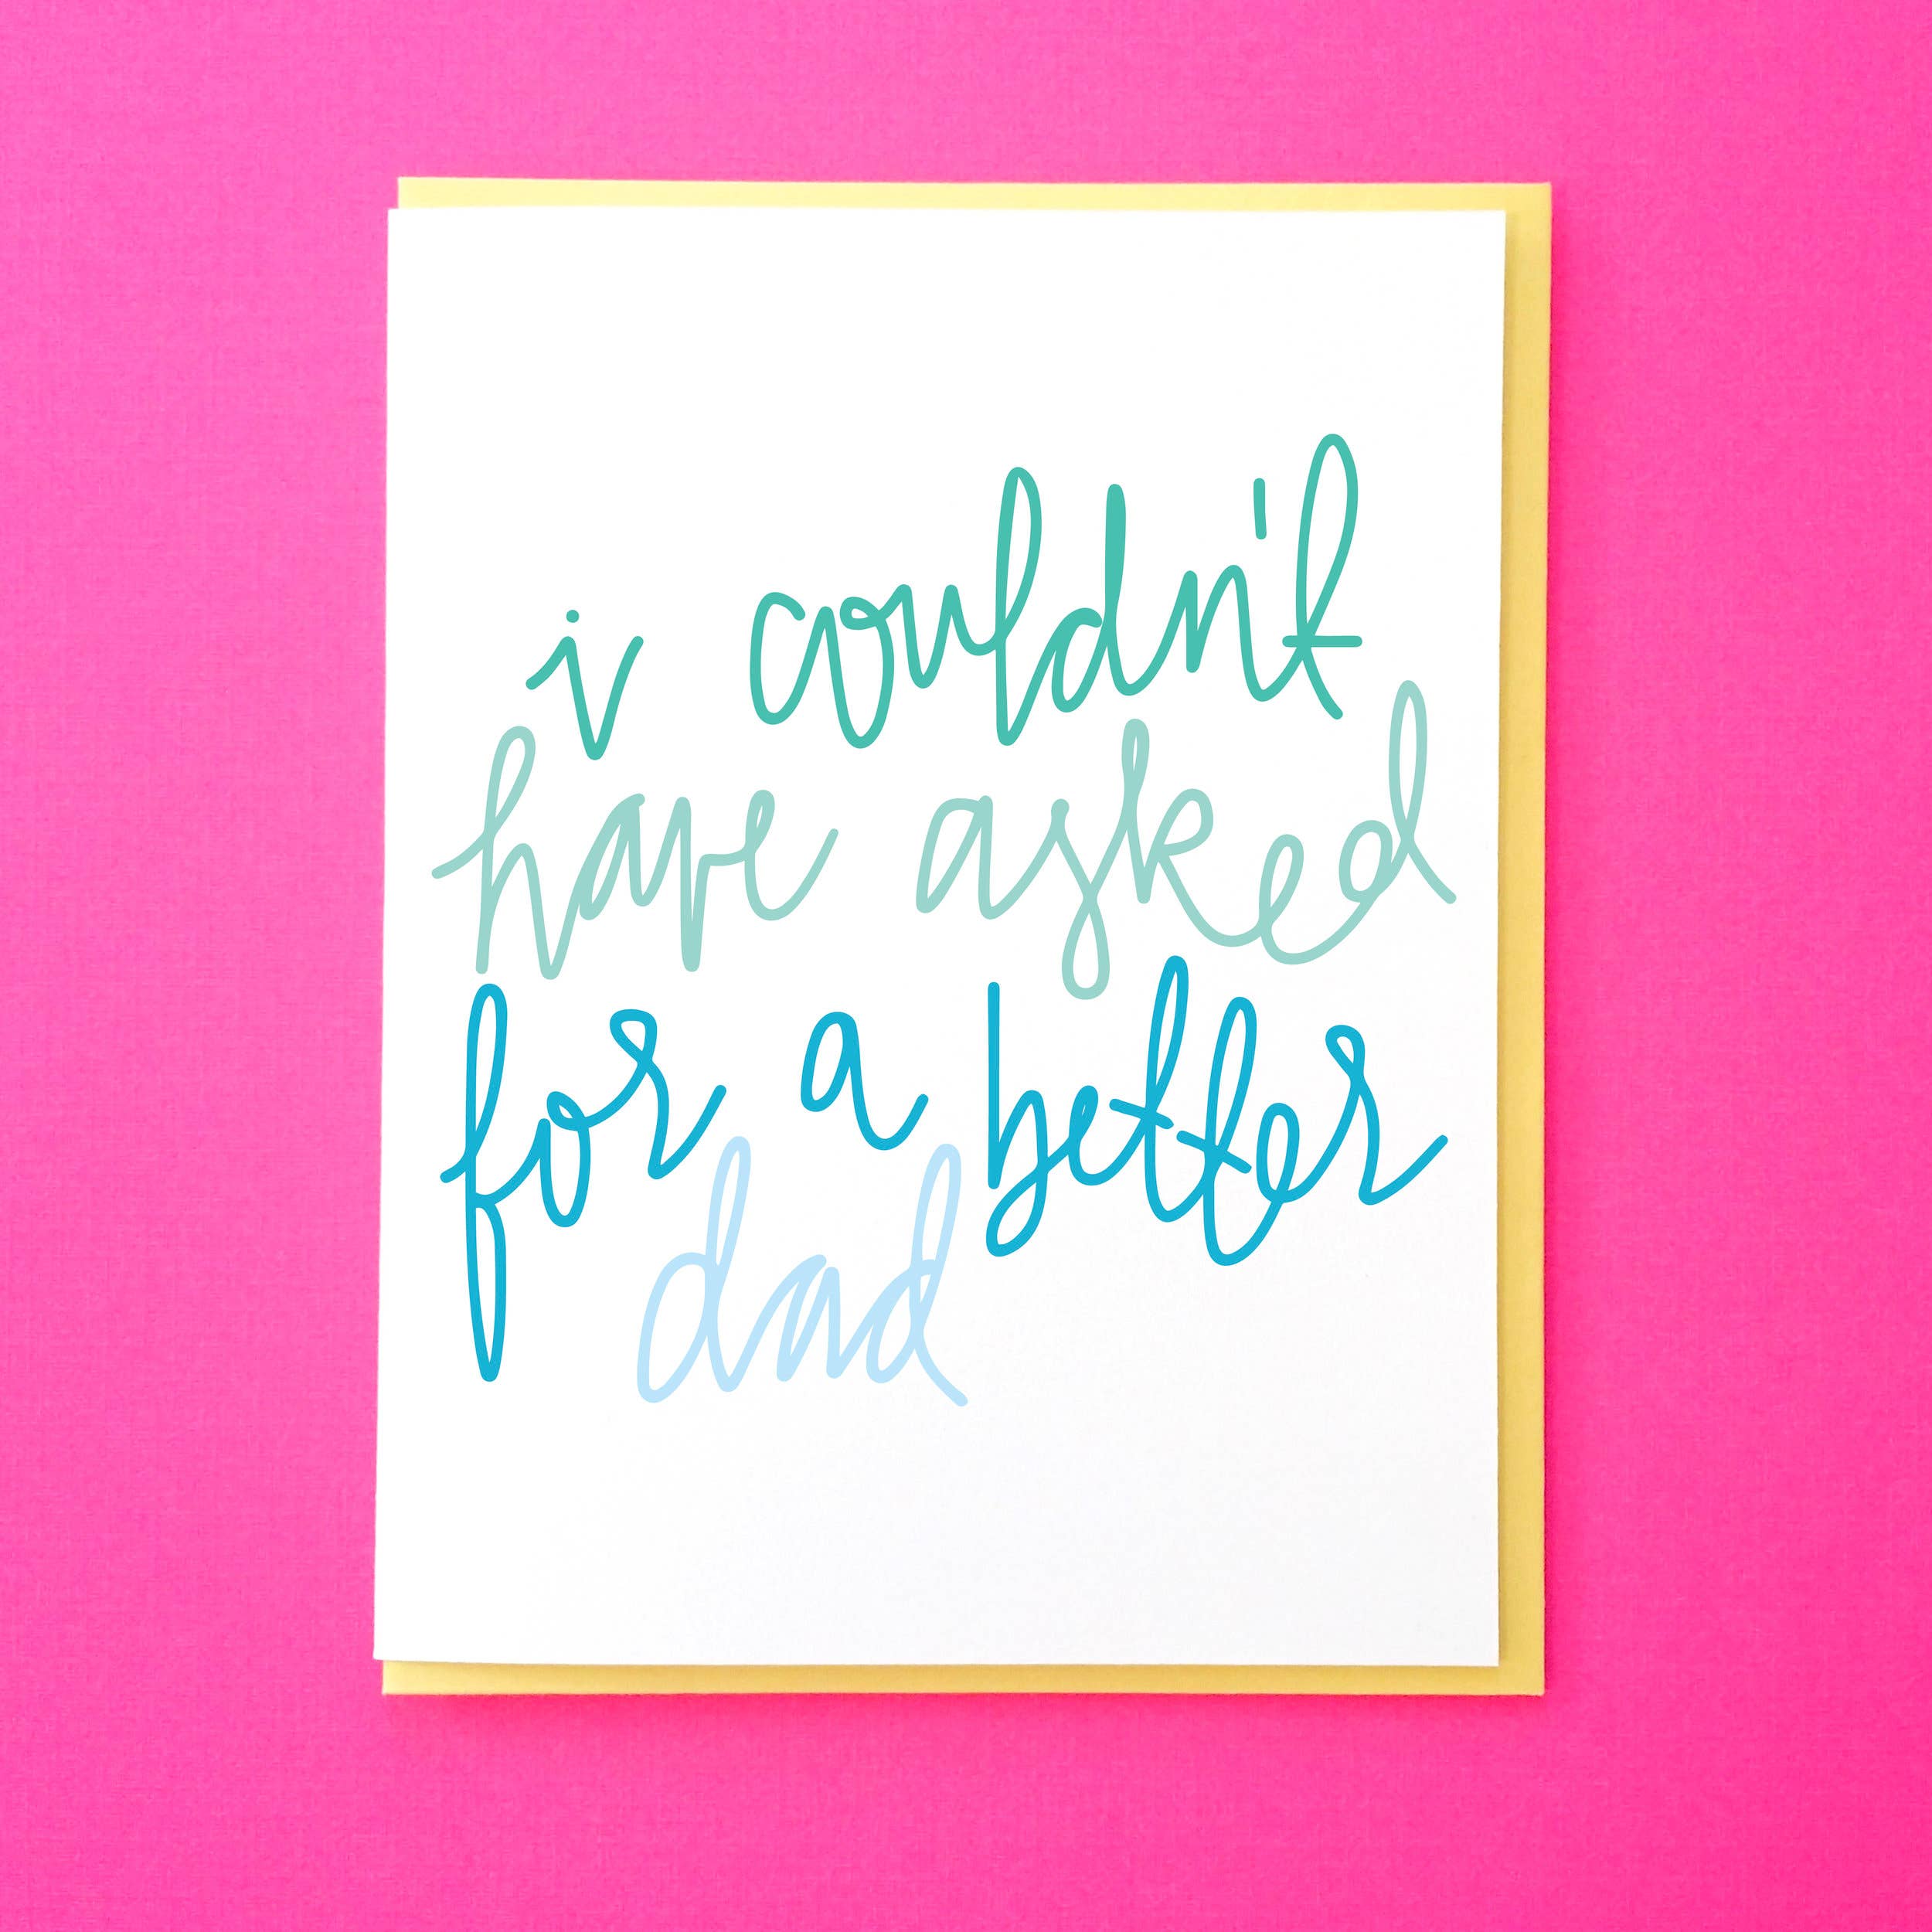 i couldn't
have asked
for a better
dad